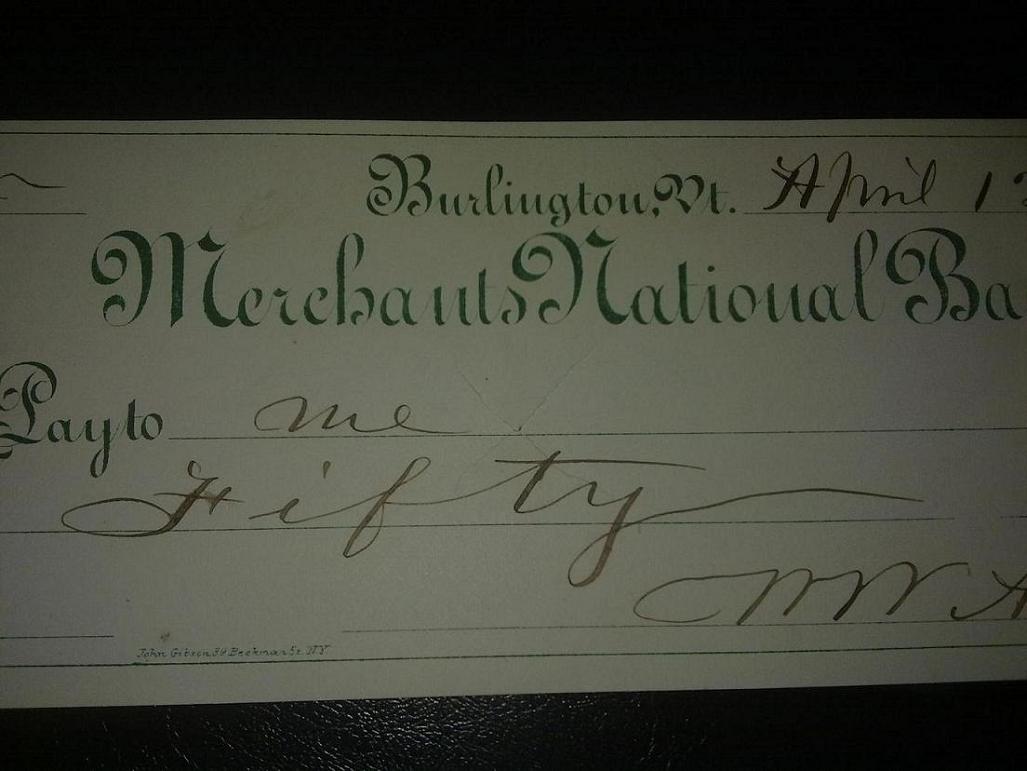 Burlington, Vt. April 1
Merchants National Ba
Pay to me
Fifty
John Gibson Beekman St. N.Y.